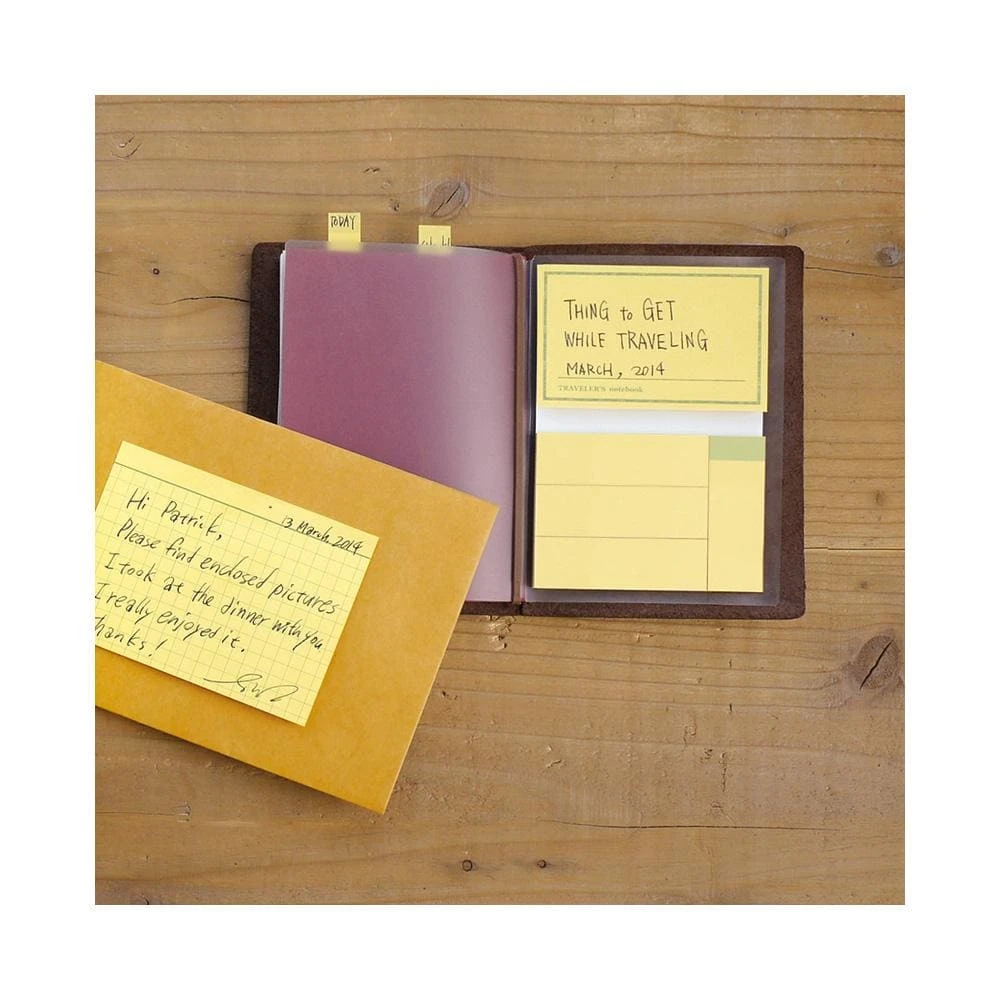 TODAY
THING to GET
WHILE TRAVELING
MARCH, 2014
TRAVELER'S notebook
13 March 2014
Hi Patrick,
Please find enclosed pictures
I took at the dinner with you
I really enjoyed it.
hanks!